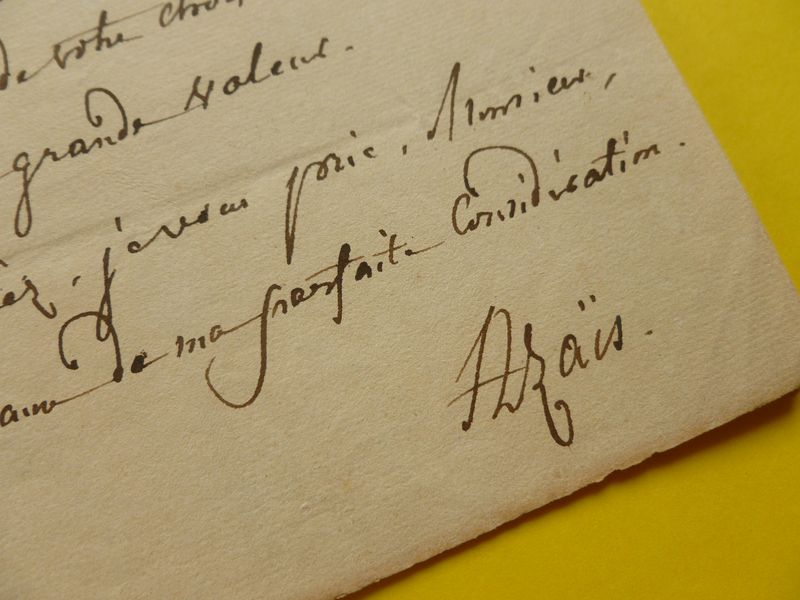 de votre choix
grande valeur.
je vous prie, Monsieur,
de ma parfaite Considération.
Azaïs.